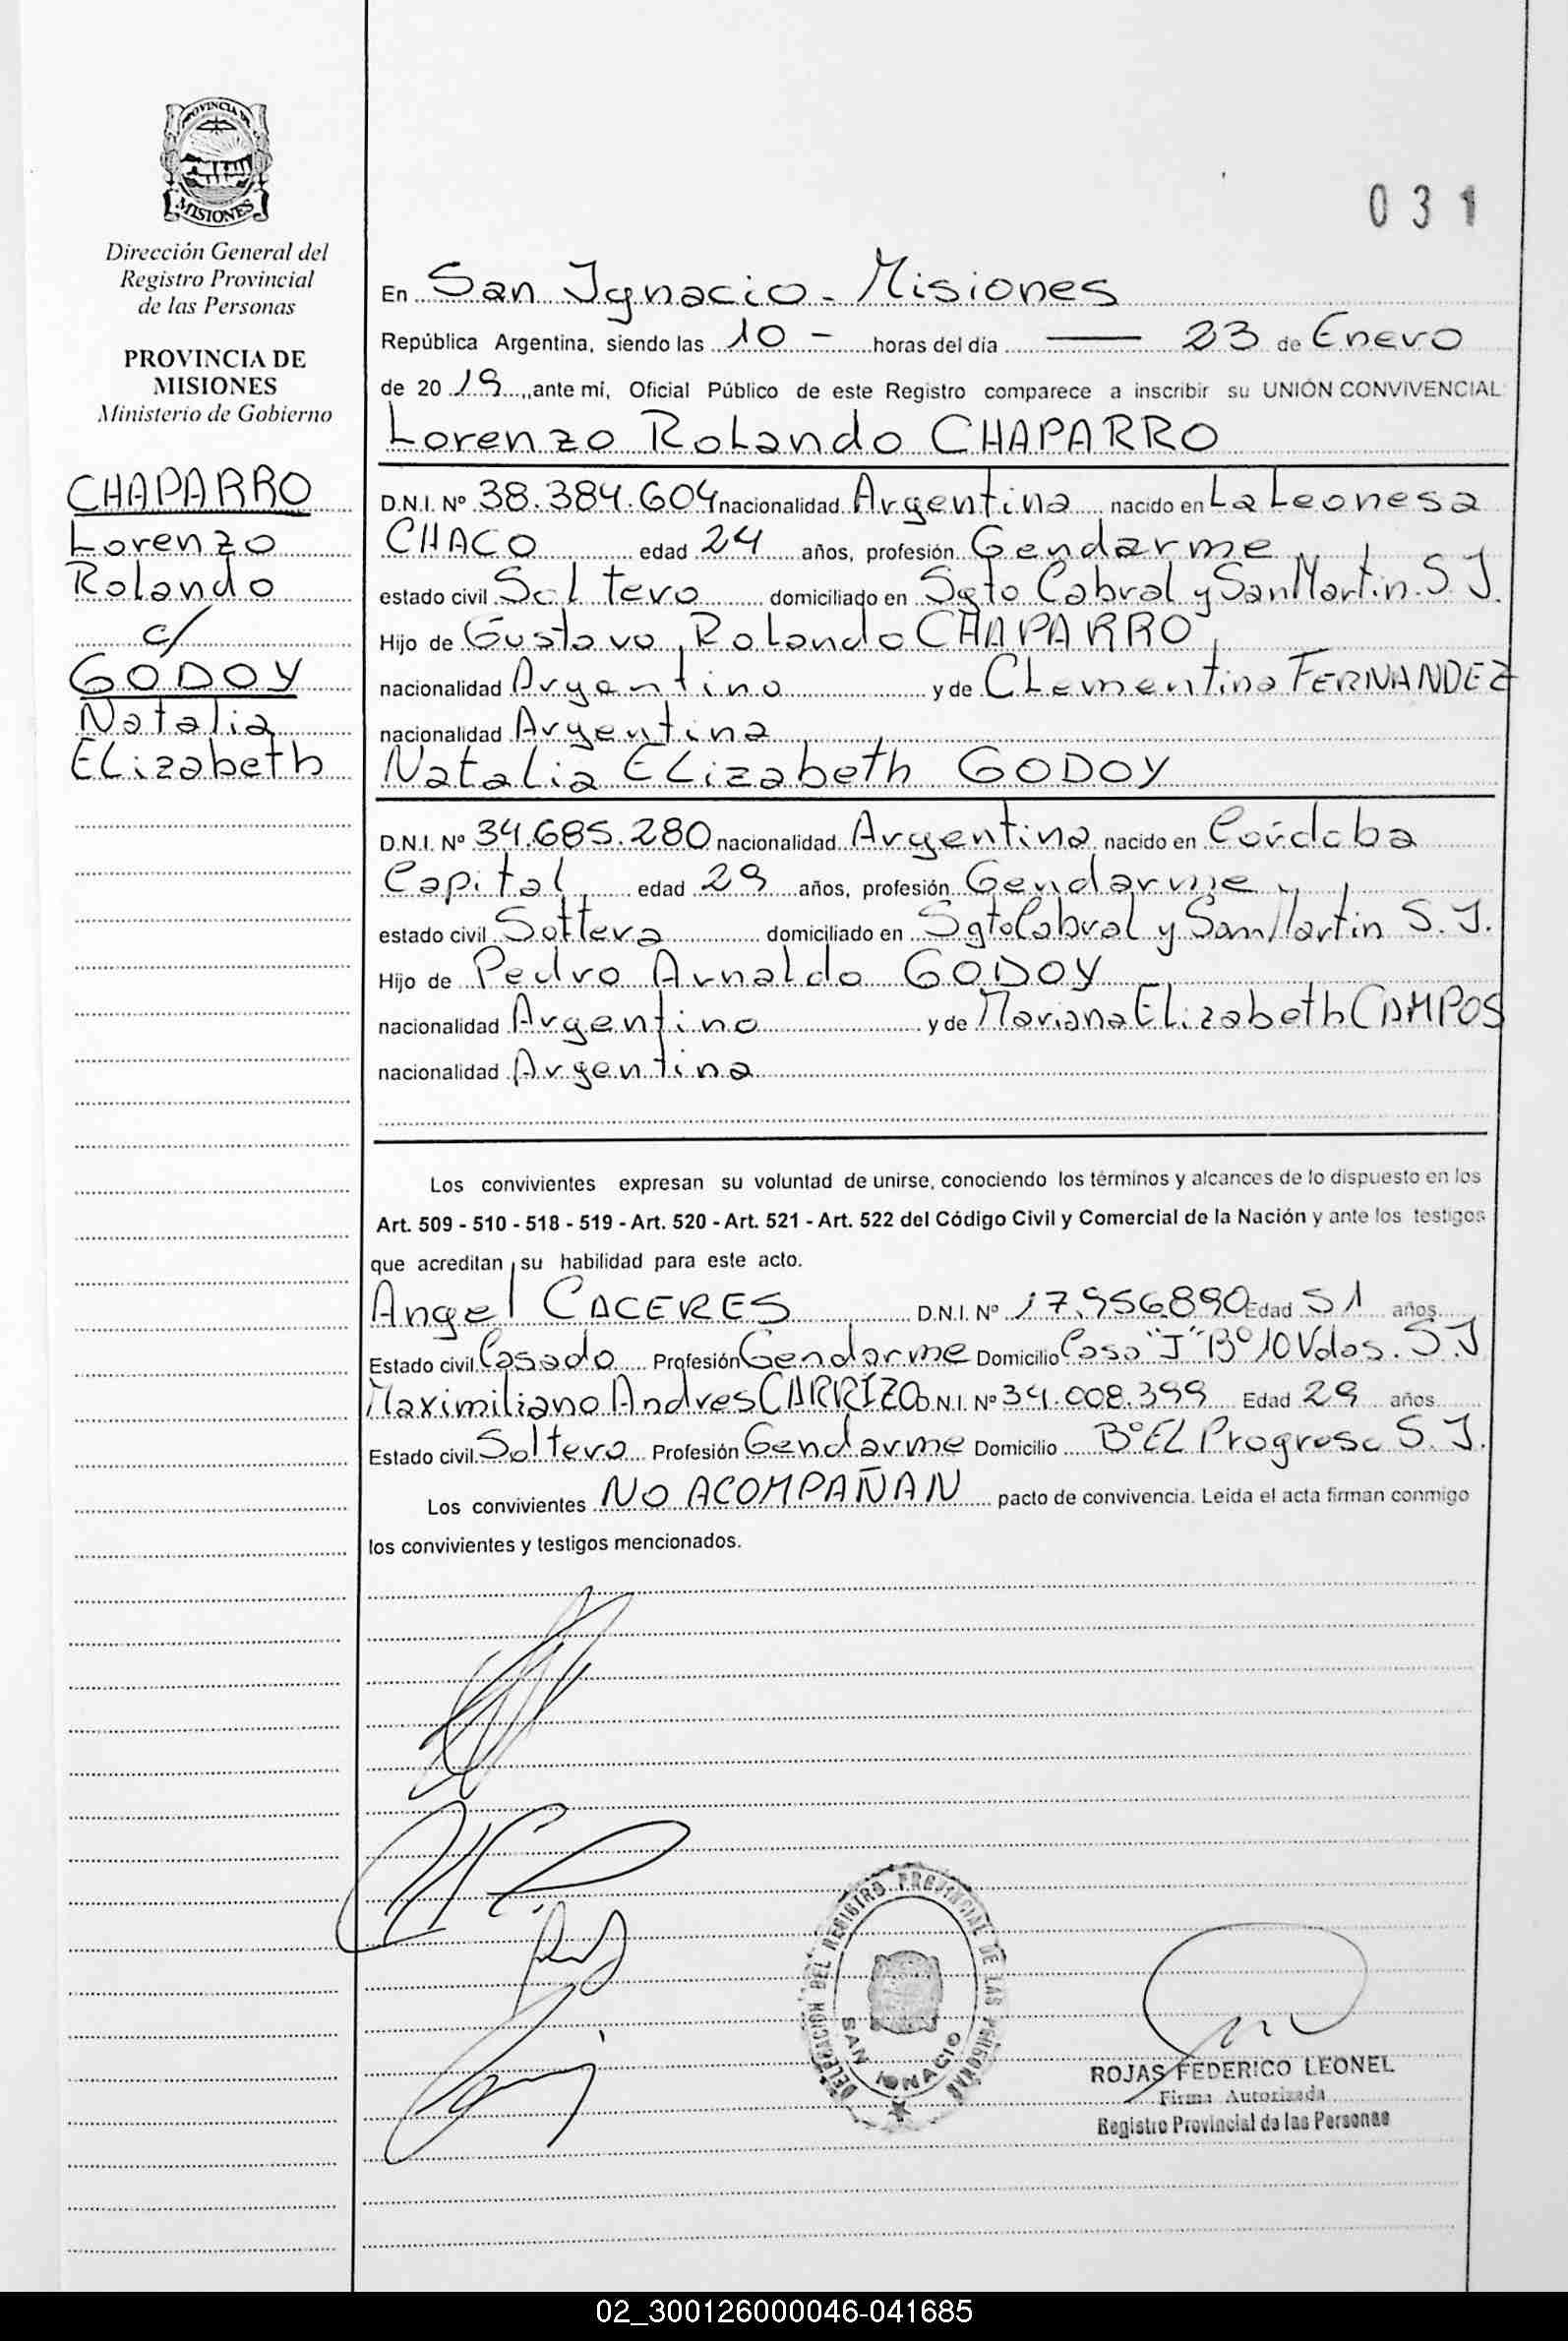 PROVINCIA DE
MISIONES
Dirección General del
Registro Provincial
de las Personas
PROVINCIA DE
MISIONES
Ministerio de Gobierno
CHAPARRO
Lorenzo
Rolando
c/
GODOY
Natalia
Elizabeth
031
En San Ignacio - Misiones
República Argentina, siendo las 10 - horas del día — 23 de Enero
de 2019, ante mí, Oficial Público de este Registro comparece a inscribir su UNIÓN CONVIVENCIAL:
Lorenzo Rolando CHAPARRO
D.N.I. Nº 38.384.604 nacionalidad Argentina nacido en La Leonesa
CHACO edad 24 años, profesión Gendarme
estado civil Soltero domiciliado en Sgto Cabral y San Martin. S.I.
Hijo de Gustavo Rolando CHAPARRO
nacionalidad Argentino y de Clementina FERNANDEZ
nacionalidad Argentina
Natalia Elizabeth GODOY
D.N.I. Nº 34.685.280 nacionalidad Argentina nacido en Córdoba
Capital edad 29 años, profesión Gendarme
estado civil Soltera domiciliado en Sgto Cabral y San Martin S.I.
Hijo de Pedro Arnaldo GODOY
nacionalidad Argentino y de Mariana Elizabeth CAMPOS
nacionalidad Argentina
Los convivientes expresan su voluntad de unirse, conociendo los términos y alcances de lo dispuesto en los
Art. 509 - 510 - 518 - 519 - Art. 520 - Art. 521 - Art. 522 del Código Civil y Comercial de la Nación y ante los testigos
que acreditan su habilidad para este acto.
Angel CACERES D.N.I. Nº 17.956.890 Edad 51 años
Estado civil Casado Profesión Gendarme Domicilio Casa "J" Bº 10 Vdas. S.I
Maximiliano Andres CARRIZO D.N.I. Nº 34.008.399 Edad 29 años
Estado civil Soltero Profesión Gendarme Domicilio Bº El Progreso S.I.
Los convivientes NO ACOMPAÑAN pacto de convivencia. Leída el acta firman conmigo
los convivientes y testigos mencionados.
DELEGACION DEL REGISTRO PROVINCIAL DE LAS PERSONAS
SAN IGNACIO
ROJAS FEDERICO LEONEL
Firma Autorizada
Registro Provincial de las Personas
02_300126000046-041685